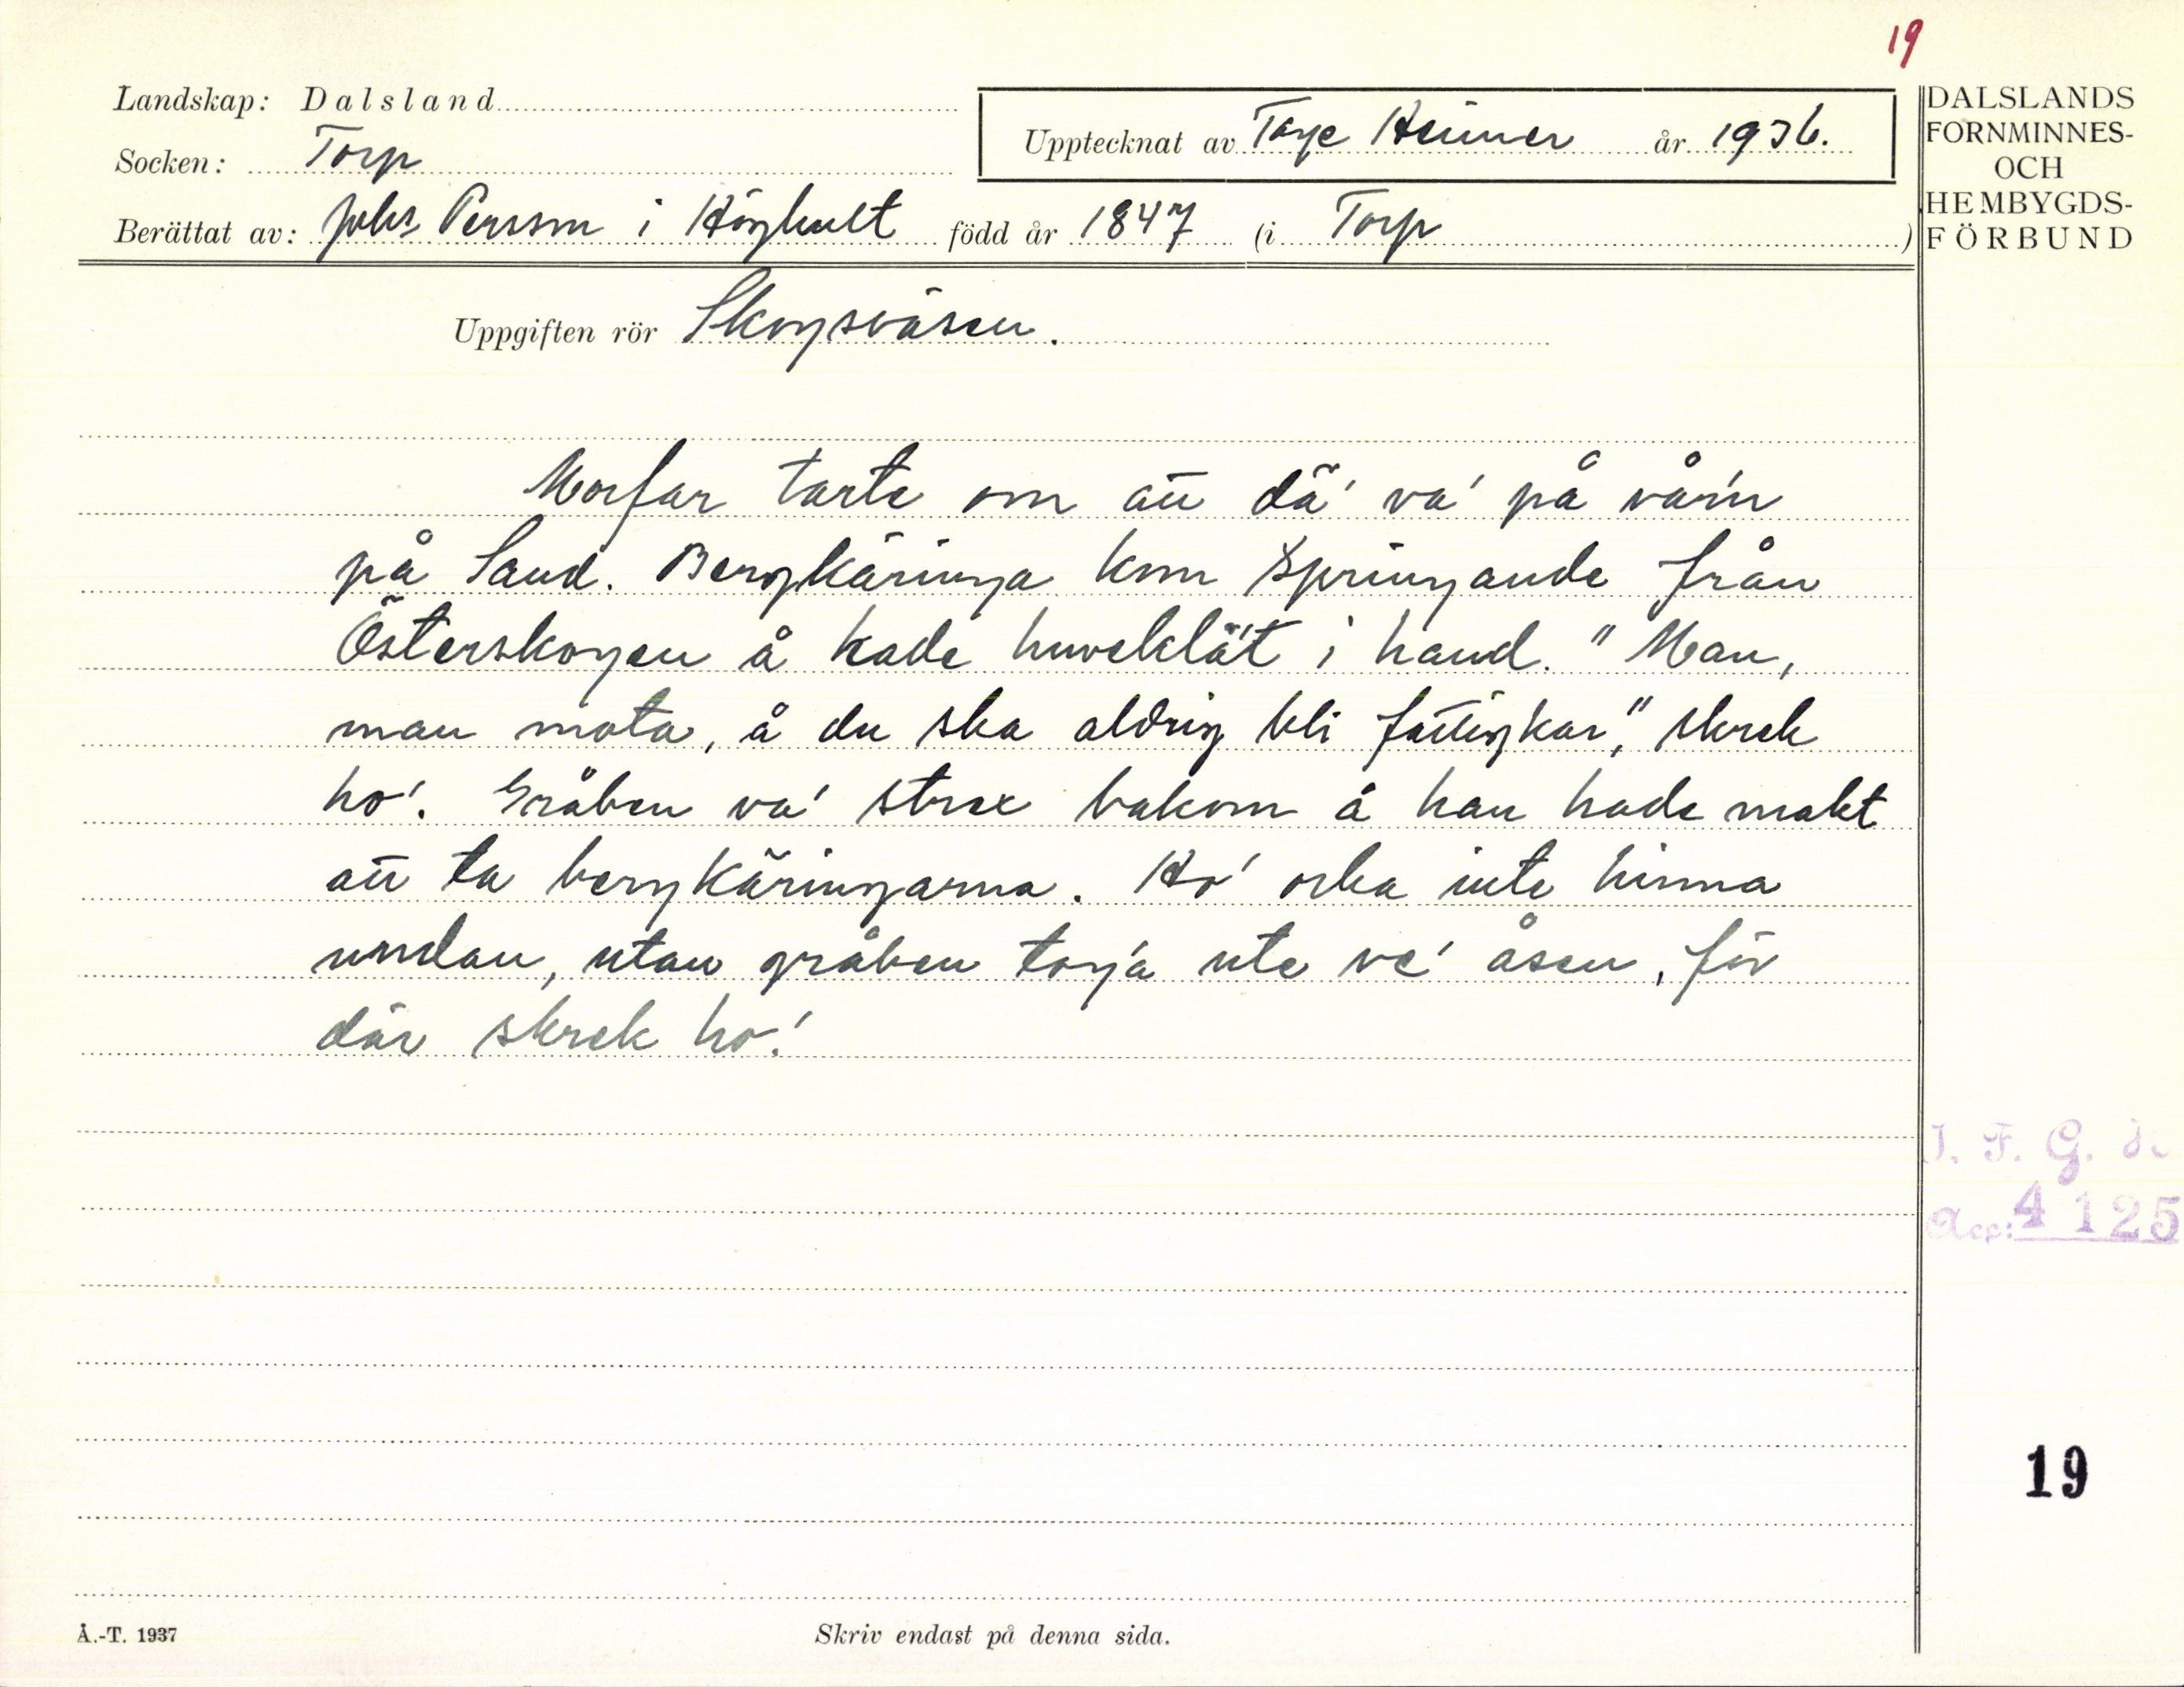 19
Landskap: Dalsland
Socken: Torp
Berättat av: Johs Persson i Höghult född år 1847 (i Torp )
Upptecknat av Tage Heimer år 1936.
DALSLANDS
FORNMINNES-
OCH
HEMBYGDS-
FÖRBUND
Uppgiften rör Skogsväsen.
Morfar tarte om att dä' va' på vår'n
på Sand. Bergkäringa kom springande från
Österskogen å hade huveklät i hand. "Man,
man mota, å du ska aldrig bli fattigkar," skrek
ho'. Gråben va' strax bakom å han hade makt
att ta bergkäringarna. Ho' orka inte hinna
undan, utan gråben tog'a ute ve' åsen, för
där skrek ho'.
I. F. G.
Acc: 4125
19
Å.-T. 1937
Skriv endast på denna sida.